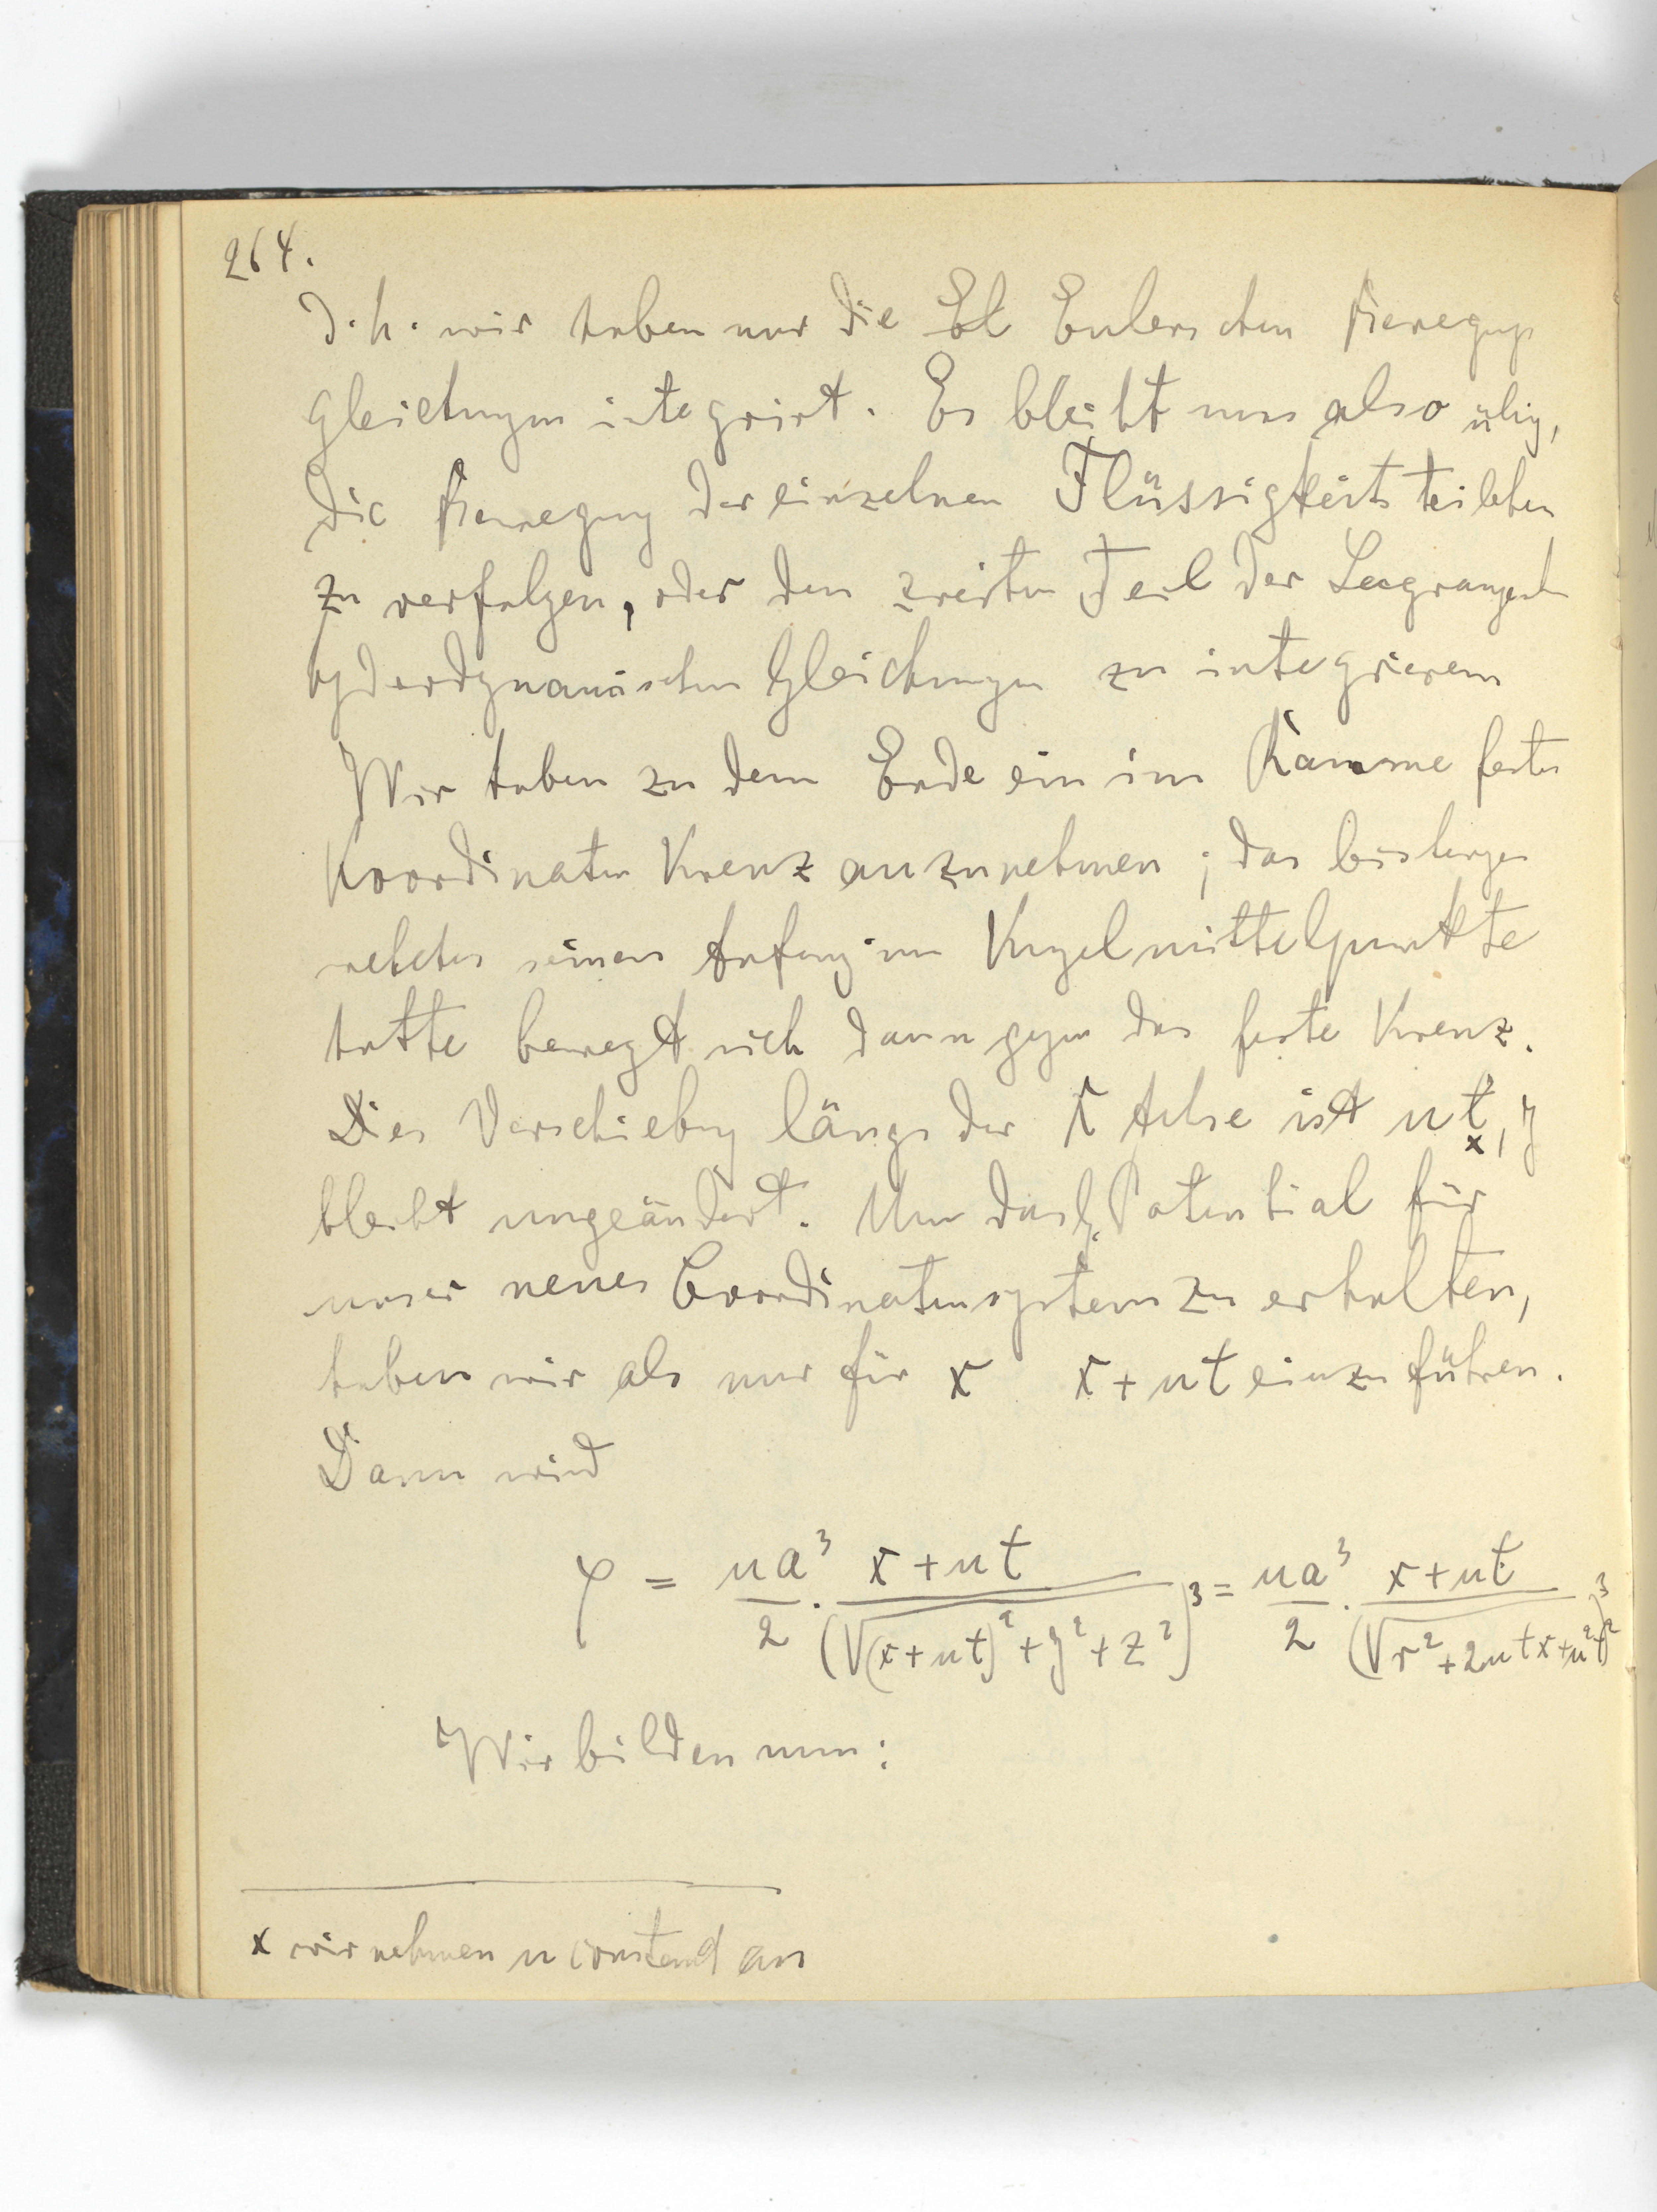 264.
d. h. wir haben nur die El Eulerschen Bewegugs
gleichungen integrirt. Es bleibt uns also übig,
die Bewegung der einzelnen Flüssigkeitsteilchen
zu verfolgen, oder den zweiten Teil der Lagrangesch
hyderdynamischen Gleichungen zu integrieren
Wir haben zu dem Ende ein im Raume festes
Koordinaten Kreuz anzunehmen; das bisherige
welches seinen Anfang im Kugelmittelpunkte
hatte bewegt sich dann gegen das feste Kreuz.
Die Verschiebung längs der x Achse ist ut, y
x
bleibt ungeändert. Um das Potential für
unser neues Coordinatensystem zu erhalten,
haben wir als nur für x x + ut einzuführen.
Dann wird
φ = ua³/2 · (x+ut)/(√(x+ut)²+y²+z²)³ = ua³/2 · (x+ut)/(√r²+2utx+u²t²)³
Wir bilden nun:
x wir nehmen u constand an